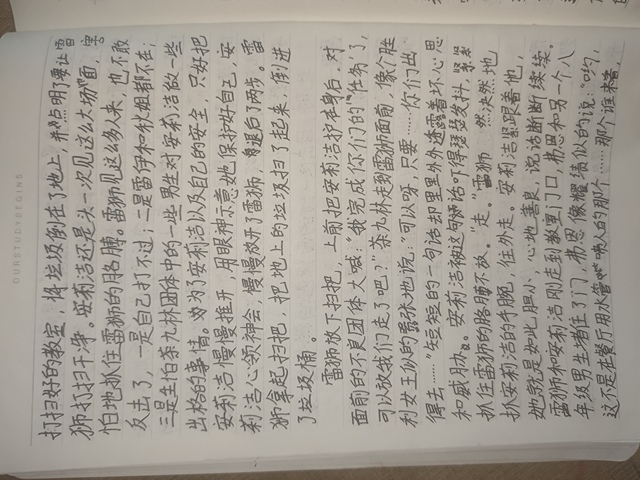 OURSTUDYBEGINS
打扫好的教室，将垃圾倒在了地上，并点明了要让雷
狮打扫干净。安莉洁还是头一次见这么大场面，害
怕地抓住雷狮的胳膊。雷狮见这么多人来，也不敢
反击了，一是自己打不过；二是雷伊和秋姐都不在；
三是生怕茶九林团体中的一些男生对安莉洁做一些
出格的事情。为了安莉洁以及自己的安全，只好把
安莉洁慢慢推开，用眼神示意她保护好自己，安
莉洁心领神会，慢慢放开了雷狮，退后了两步。雷
狮拿起扫把，把地上的垃圾扫了起来，倒进
了垃圾桶。
雷狮放下扫把，上前把安莉洁护在身后，对
面前的不良团体大喊：“我完成你们的“任务”了，
可以放我们走了吧？”茶九林走到雷狮面前，像个胜
利女王似的嚣张地说：“可以呀，只要……你们出
得去……”短短的一句话却里里外外透露着坏心思
和威胁。安莉洁被这句话吓得瑟瑟发抖，紧紧
抓住雷狮的胳膊不放。“走。”雷狮 然决然地
抓安莉洁的手腕，往外走。安莉洁紧跟着他，
她就是如此胆小，心地善良，说话断断续续。
雷狮和安莉洁刚走到教室门口，弗恩和另一个八
年级男生堵住了门，弗恩像耀猜似的说：“哟，
这不是在餐厅用水管喷人的那个……那个谁来着，